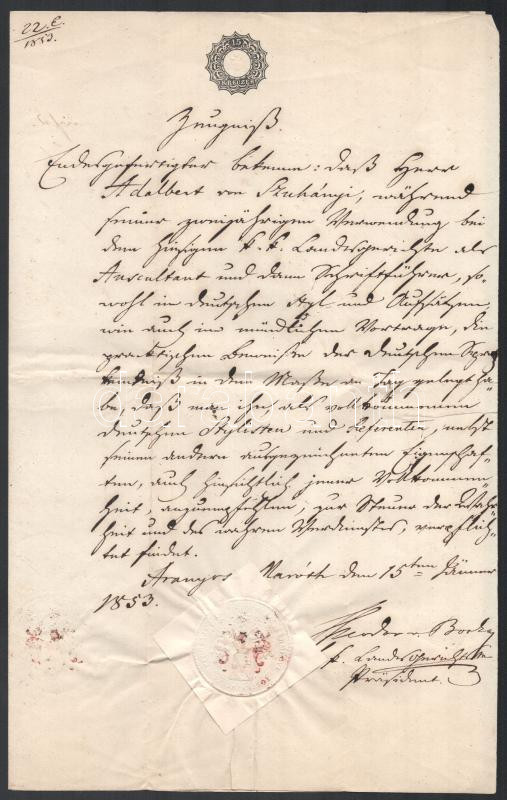 22. E.
1853.
15
KREUZER
Zeugniß.
Endesgefertigter bekenne: daß Herr
Adalbert von Szuhányi, während
seiner zweijährigen Verwendung bei
dem hiesigen k. k. Landesgerichte als
Auscultant und dann Schriftführer, so-
wohl in deutschem Styl und Aufsätzen,
wie auch im mündlichen Vortrage, die
practischen Beweise der deutschen Sprach-
kenntniß in dem Maße an Tag gelegt ha-
be, daß man ihn als vollkommenen
deutschen Stylisten und Referenten, nebst
seinen andern ausgezeichneten Eigenschaf-
ten, auch hinsichtlich jener Vollkommen-
heit, anzuempfehlen, zur Steuer der Wahr-
heit und des wahren Verdienstes, verpflich-
tet findet.
Aranyos Maróth den 15ten Jänner
1853.
k. Landesgerichts
Präsident.